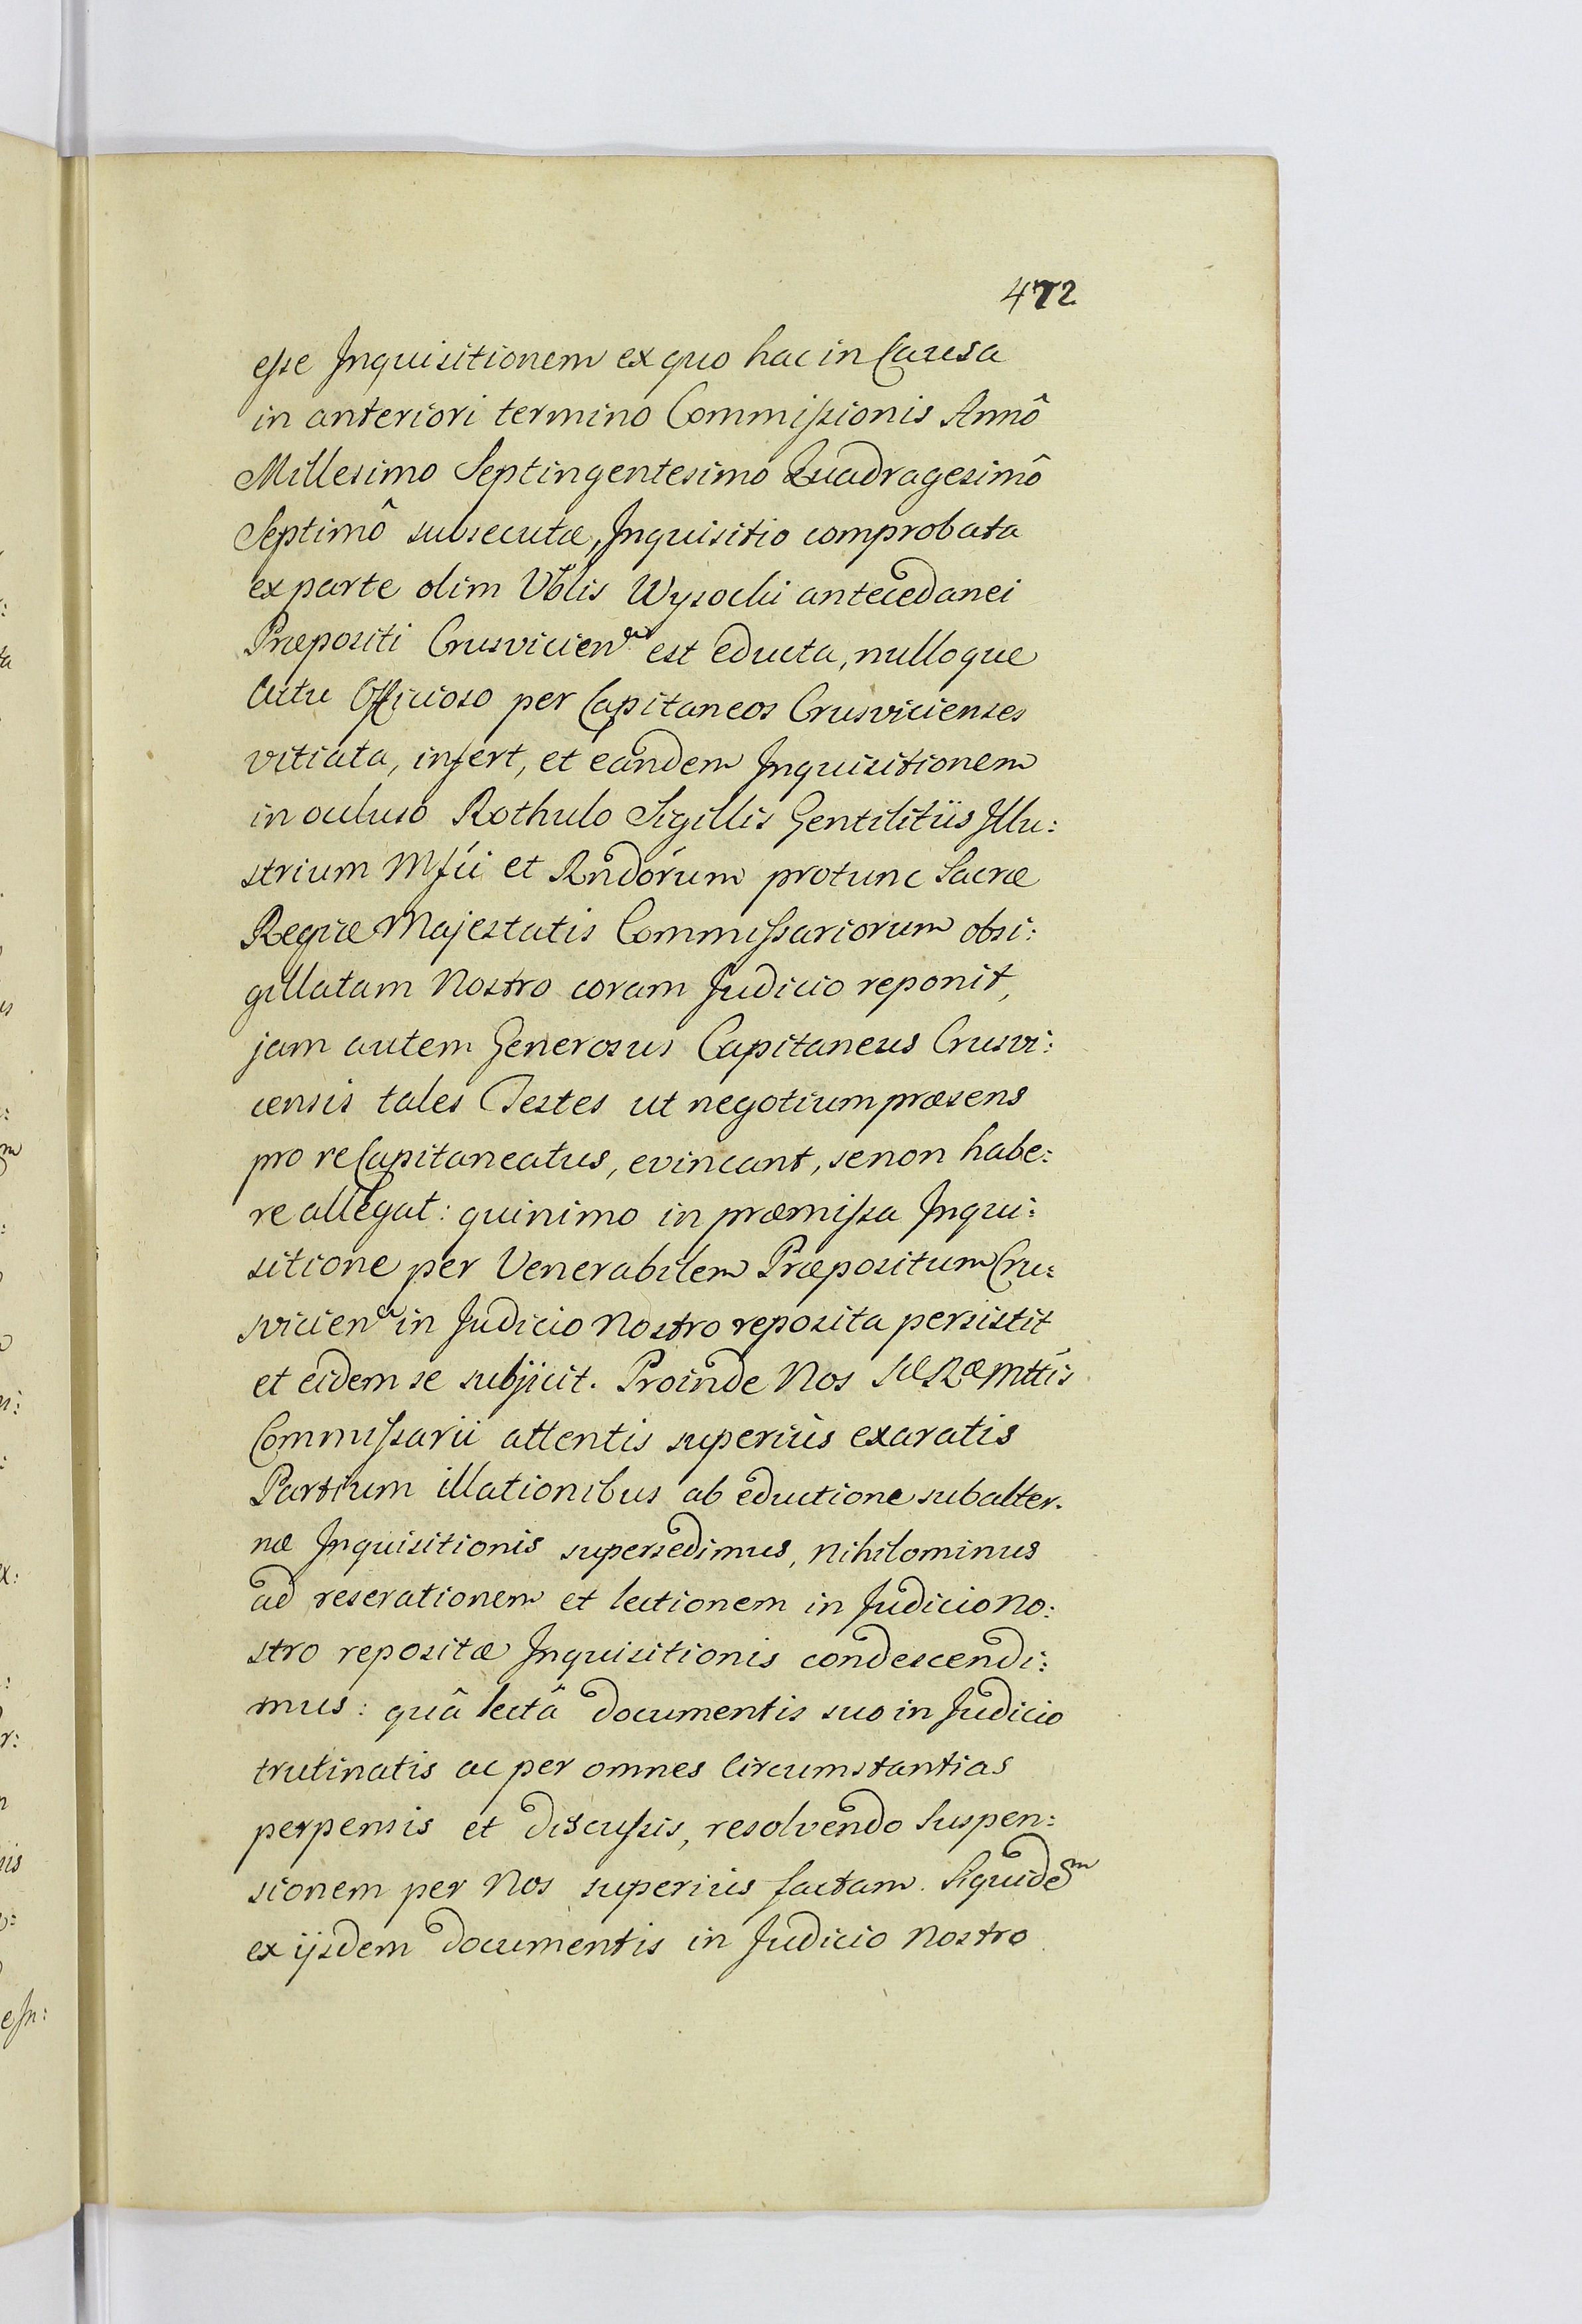 472
esse Inquisitionem ex quo hac in Causa
in anteriori termino Commissionis Annô
Millesimo Septingentesimo Quadragesimô
Septimô subsecutæ, Inquisitio comprobata
ex parte olim Vblis Wysocki antecedanei
Præpositi Crusvicien est educta, nulloque
Actu Officioso per Capitaneos Crusvicienses
vitiata, infert, et eandem Inquisitionem
in ocluso Rothulo Sigillis Gentilitiis Illu:
strium Mfci et Rndorum protunc Sacræ
Regiæ Majestatis Commissariorum obsi:
gillatam Nostro coram Judicio reponit,
jam autem Generosus Capitaneus Crusvi:
censis tales Testes ut negotium præsens
pro re Capitaneatus, evincant, se non habe:
re allegat: quinimo in præmissa Inqui:
sitione per Venerabilem Præpositum Cru:
svicien in Judicio Nostro reposita persistit
et eidem se subjicit. Proinde Nos SæRæMttis
Commissarii attentis superiùs exaratis
Partium illationibus ab eductione subalter.
næ Inquisitionis supersedimus, nihilominus
ad reserationem et lectionem in Judicio No:
stro repositæ Inquisitionis condescendi:
mus: quâ lectâ documentis suo in Judicio
trutinatis ac per omnes Circumstantias
perpensis et discussis, resolvendo Suspen:
sionem per Nos superiùs factam. Siquidem
ex ijsdem documentis in Judicio Nostro